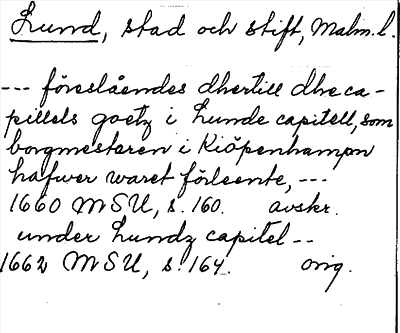 Lund, stad och stift, Malm.l.
--- föreslåendes dhertill dhe ca-
pittels goetz i Lunde capitell, som
borgmestaren i Kiöpenhampn
hafwer waret förleente, ---
1660 MSU, s. 160. avskr.
under Lundz capitel --
1662 MSU, s. 164. orig.